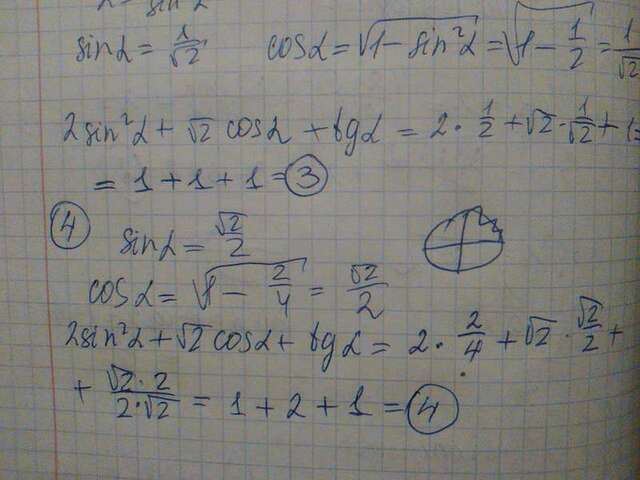 sinα = 1/√2 cosα = √(1 - sin²α) = √(1 - 1/2) = 1/√2
2sin²α + √2 cosα + tgα = 2 · 1/2 + √2 · 1/√2 + 1 =
= 1 + 1 + 1 = 3
4 sinα = √2/2
cosα = √(1 - 2/4) = √2/2
2sin²α + √2 cosα + tgα = 2 · 2/4 + √2 · √2/2 +
+ √2·2/2·√2 = 1 + 2 + 1 = 4